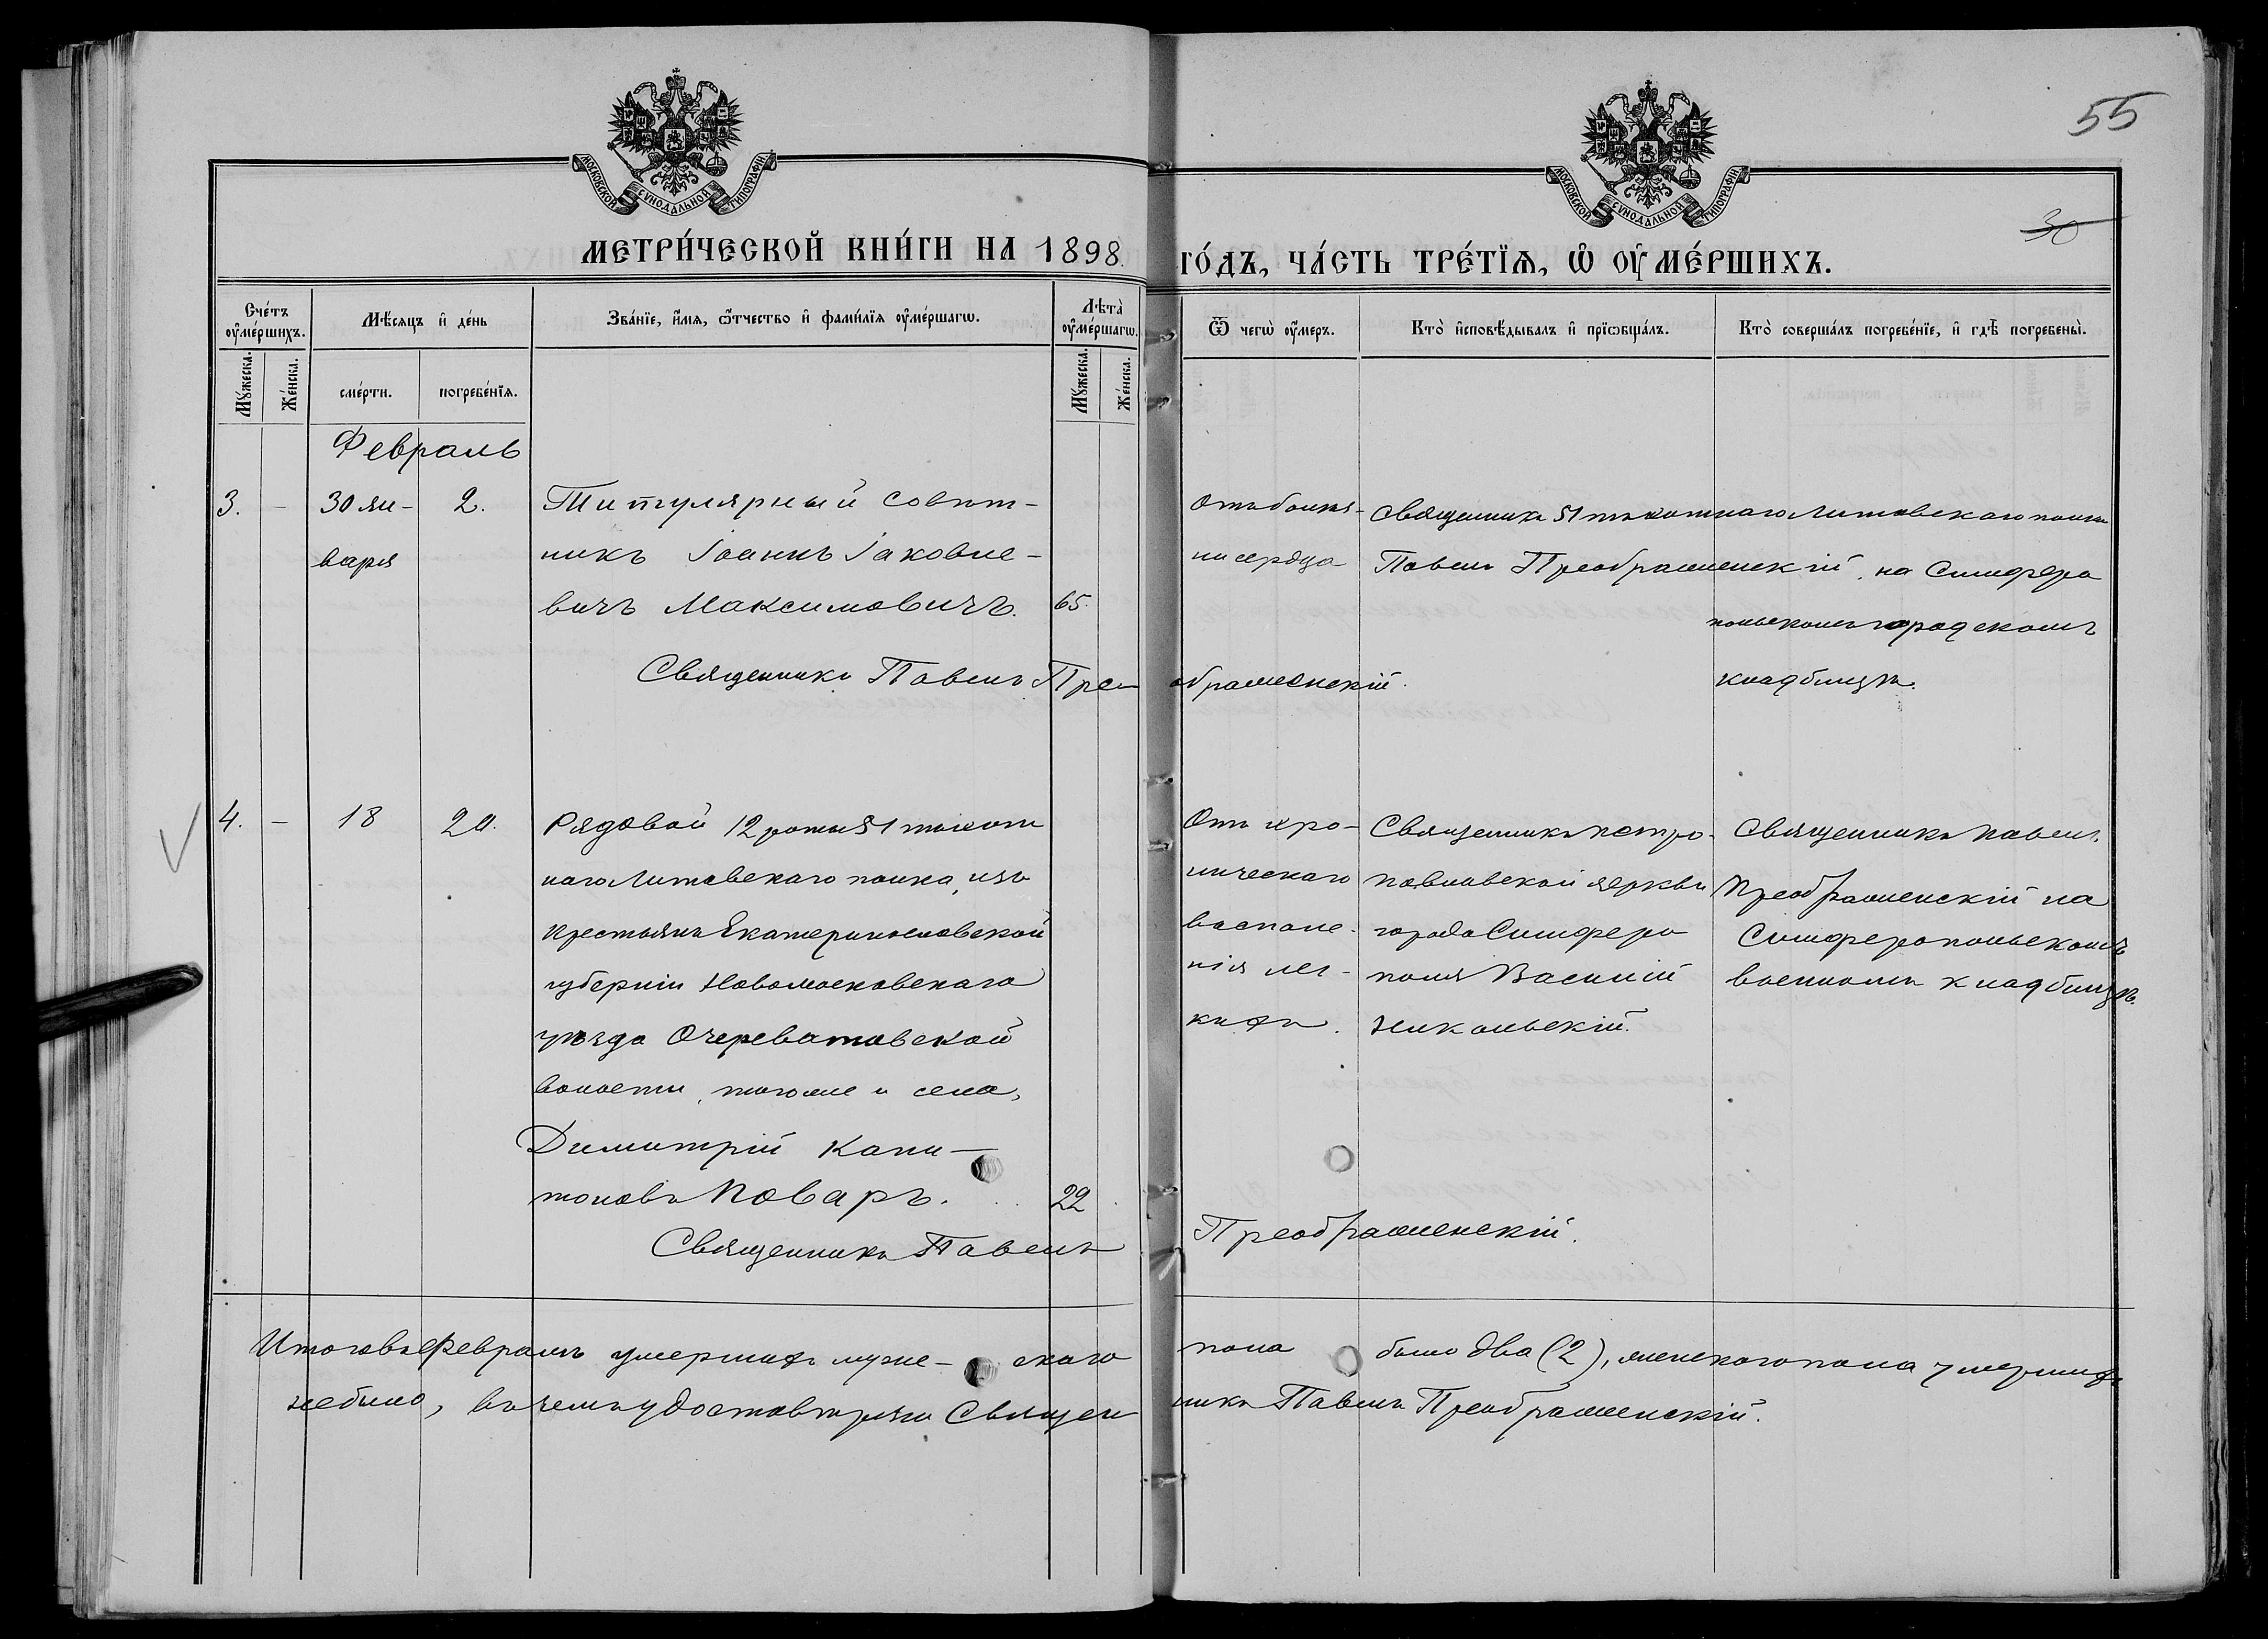 55
30
МОСКОВСКОЙ СѴНОДАЛЬНОЙ ТИПОГРАФІИ
МОСКОВСКОЙ СѴНОДАЛЬНОЙ ТИПОГРАФІИ
МЕТРИ́ЧЕСКОЙ КНИ́ГИ НА 1898. ГО́ДЪ, ЧА́СТЬ ТРЕ́ТЇѦ, Ѡ҆ ОУ҆МЕ́РШИХЪ.
Сче́тъ оу҆ме́ршихъ.
Мꙋ́жеска.
Же́нска.
Мѣ́сяцъ и҆ де́нь
сме́рти.
погребе́нїѧ.
Зва́нїе, и҆́мѧ, ѻ҆́тчество и҆ фами́лїѧ оу҆ме́ршагѡ.
Лѣта̀ оу҆ме́ршагѡ.
Мꙋ́жеска.
Же́нска.
Ѿ чегѡ̀ оу҆́меръ.
Кто̀ и҆сповѣ́дывалъ и҆ прїѻбща́лъ.
Кто̀ соверша́лъ погребе́нїе, и҆ гдѣ̀ погребены̀.
Февраль
3.
-
30 ян-
варя
2.
Титулярный совѣт-
никъ Іоаннъ Іаковле-
вичъ Максимовичъ.
65.
Отъ болѣз-
ни сердца
Священникъ 51 пѣхотнаго Литовскаго полка
Павелъ Преображенскій, на Симферо
польскомъ городскомъ
кладбищѣ.
Священникъ Павелъ Преображенскій.
4.
-
18
20.
Рядовой 12 роты 51 пѣхот
наго Литовскаго полка, изъ
крестьянъ Екатеринославской
губерніи Новомосковскаго
уѣзда Очереватовской
волости, того же и села,
Димитрій Капи-
тоновъ Поваръ.
22
Отъ хро-
ническаго
воспале-
нія лег-
кихъ.
Священникъ Петро-
павловской церкви
города Симферо
поля Василій
Никольскій.
Священникъ Павелъ
Преображенскій на
Симферопольскомъ
военномъ кладбищѣ.
Священникъ Павелъ Преображенскій.
Итого въ Февралѣ умершихъ муже-скаго пола было два (2), женскаго пола умершихъ
не было, въ чемъ удостовѣряю Священникъ Павелъ Преображенскій.